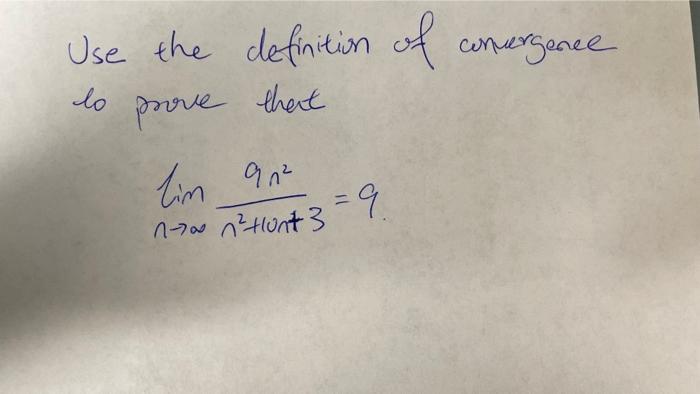 Use the definition of convergence
to prove that
lim 9n²/(n²+10n+3) = 9.
n→∞